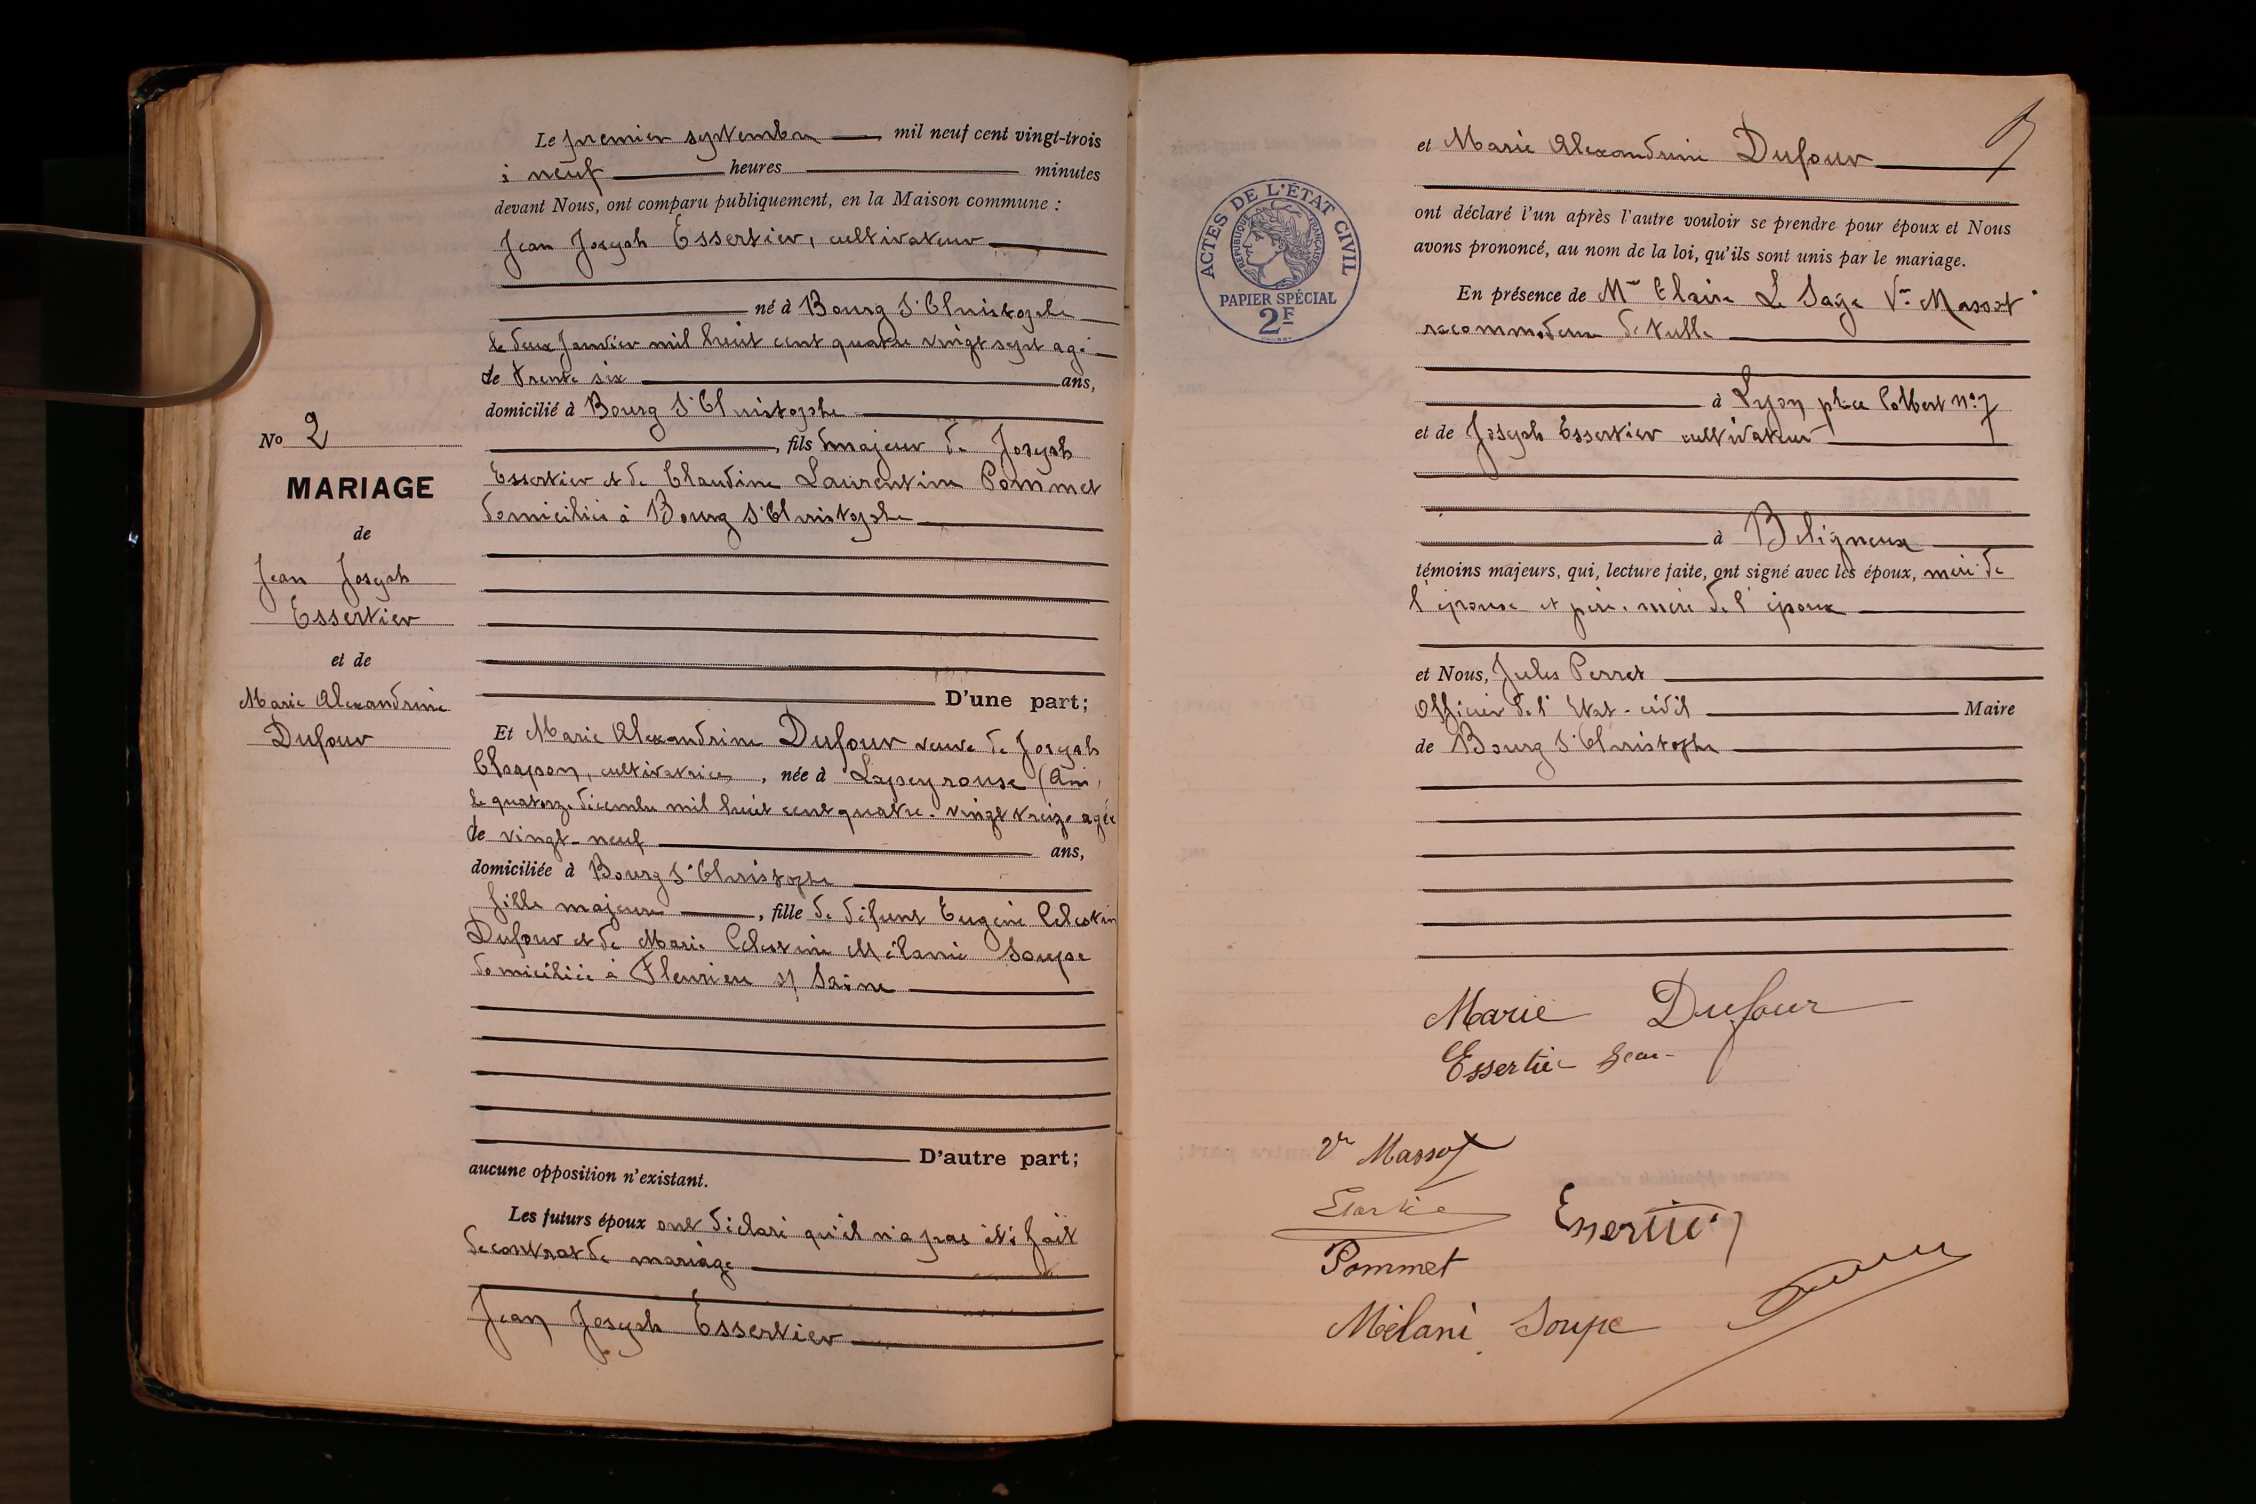 Le premier septembre mil neuf cent vingt-trois
à neuf heures minutes
devant Nous, ont comparu publiquement, en la Maison commune :
Jean Joseph Essertier, cultivateur
né à Bourg St Christophe
le deux Janvier mil huit cent quatre vingt sept agé
de trente six ans,
domicilié à Bourg St Christophe
, fils majeur de Joseph
Essertier et de Claudine Laurentine Pommet
domiciliés à Bourg St Christophe
D'une part;
No 2
MARIAGE
de
Jean Joseph
Essertier
et de
Marie Alexandrine
Dufour
Et Marie Alexandrine Dufour veuve de Joseph
Chapon, cultivatrice, née à Lapeyrouse (Ain,
le quatorze décembre mil huit cent quatre-vingt treize agée
de vingt-neuf ans,
domiciliée à Bourg St Christophe
fille majeure, fille de défunt Eugène Célestin
Dufour et de Marie Célestine Mélanie Soupe
domiciliée à Fleurieu s/ Saône
D'autre part;
aucune opposition n'existant.
Les futurs époux ont déclaré qu'il n'a pas été fait
de contrat de mariage
Jean Joseph Essertier
et Marie Alexandrine Dufour
ont déclaré l'un après l'autre vouloir se prendre pour époux et Nous
avons prononcé, au nom de la loi, qu'ils sont unis par le mariage.
ACTES DE L'ÉTAT CIVIL
RÉPUBLIQUE FRANÇAISE
PAPIER SPÉCIAL
2F
En présence de Mme Claire Le Sage Vve Massot
racommodeuse de tulle
à Lyon place Colbert no 7
et de Joseph Essertier cultivateur
à Béligneux
témoins majeurs, qui, lecture faite, ont signé avec les époux, mère de
l'épouse et père, mère de l'époux
et Nous, Jules Perret
Officier de l'Etat-civil Maire
de Bourg St Christophe
Marie Dufour
Essertier Jean
Vve Massot
Essertier
Essertier
Pommet
Mélani Soupe